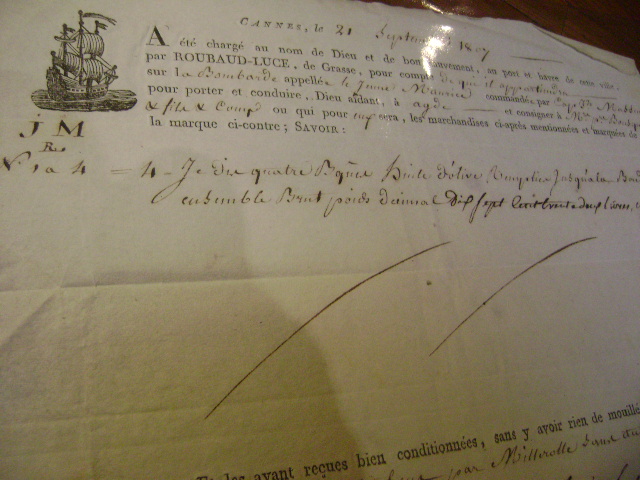 CANNES, le 21 Septembre 1807
A été chargé au nom de Dieu et de bon sauvement, au port et havre de cette ville,
par ROUBAUD-LUCE, de Grasse, pour compte de qui il appartiendra
sur la Bombarde appellée le Jeune Maurice commandée par Cap.
pour porter et conduire, Dieu aidant, à agde et consigner à
& fils & Comp. ou qui pour eux sera, les marchandises ci-après mentionnées et marquées de
la marque ci-contre; SAVOIR:
J M
R
N° 1 a 4 = 4 - Je dis quatre Huile d'olive Jusqu'a la
ensemble Brut poids décimal Dix sept Cent trente deux livres
et les ayant reçues bien conditionnées, sans y avoir rien de mouillé
par Millerolle